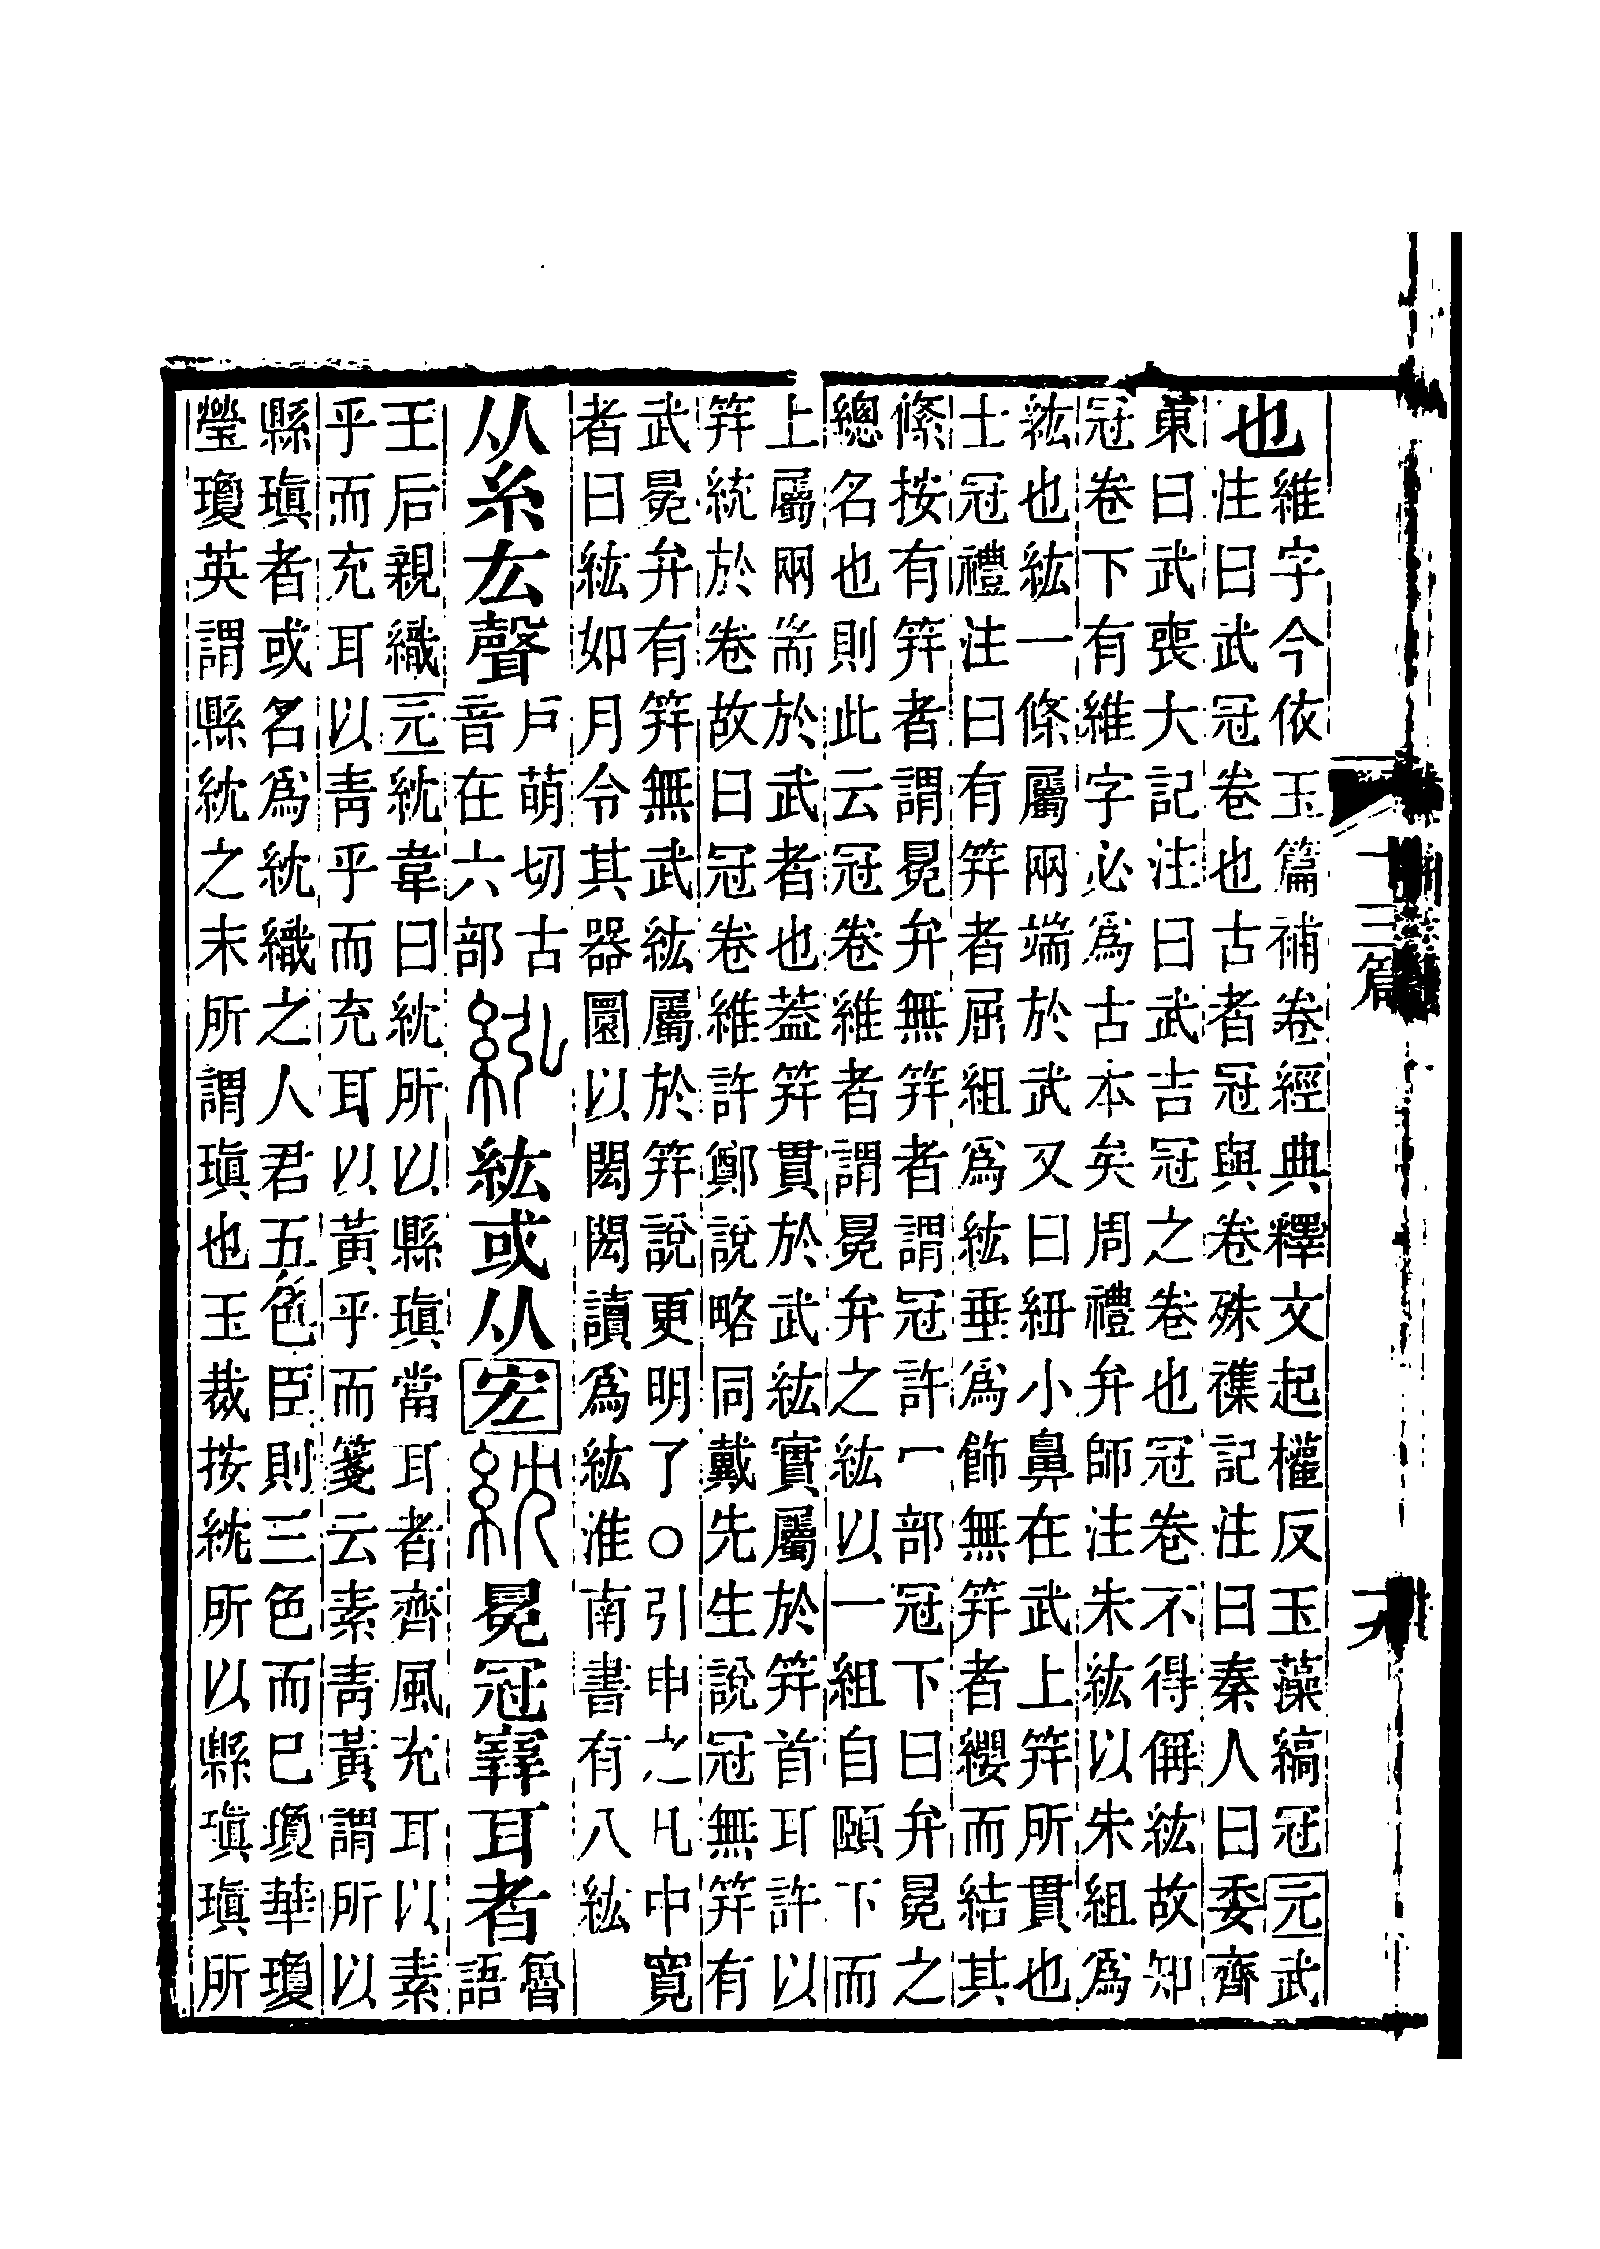 也
維字今依玉篇補卷經典釋文起權反玉藻縞冠元武
注曰武冠卷也古者冠與卷殊襍記注曰秦人曰委齊
東曰武喪大記注曰武吉冠之卷也冠卷不得偁紘故知
冠卷下有維字必爲古本矣周禮弁師注朱紘以朱組爲
紘也紘一條屬兩端於武又曰紐小鼻在武上筓所貫也
士冠禮注曰有筓者屈組爲紘垂爲飾無筓者纓而結其
絛按有筓者謂冕弁無筓者謂冠許冖部冠下曰弁冕之
總名也則此云冠卷維者謂冕弁之紘以一組自頤下而
上屬兩耑於武者也葢筓貫於武紘實屬於筓首耳許以
筓統於卷故曰冠卷維許鄭說略同戴先生說冠無筓有
武冕弁有筓無武紘屬於筓說更明了○引申之凡中寬
者曰紘如月令其器圜以閎閎讀爲紘淮南書有八紘
从糸厷聲
戶萌切古
音在六部
紭紘或从宏
紞冕冠塞耳者
魯
語
王后親織元紞韋曰紞所以縣瑱當耳者齊風充耳以素
乎而充耳以靑乎而充耳以黃乎而箋云素靑黃謂所以
縣瑱者或名爲紞織之人君五色臣則三色而巳瓊華瓊
瑩瓊英謂縣紞之末所謂瑱也玉裁按紞所以縣瑱瑱所
十三篇